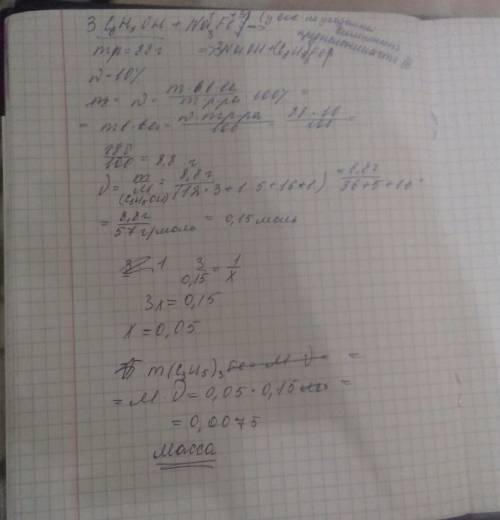 3 C₃H₅OH + Na₃
mр = 88г = 3NaOH +
ω = 10%
m = ω = m в-ва / m р-ра · 100% =
= m в-ва = ω · m р-ра / 100 = 88 · 10 / 100 =
880 / 100 = 8,8 г
ν = m / M (C₃H₅OH) = 8,8г / (12 · 3 + 1 · 5 + 16 + 1) = 8,8г / 36 + 5 + 16
= 8,8г / 57 г/моль = 0,15 моль
1 3 / 0,15 = 1 / x
3x = 0,15
x = 0,05
m (C₃H₅)₃ =
= M · ν = 0,05 · 0,15 =
= 0,0075
Масса